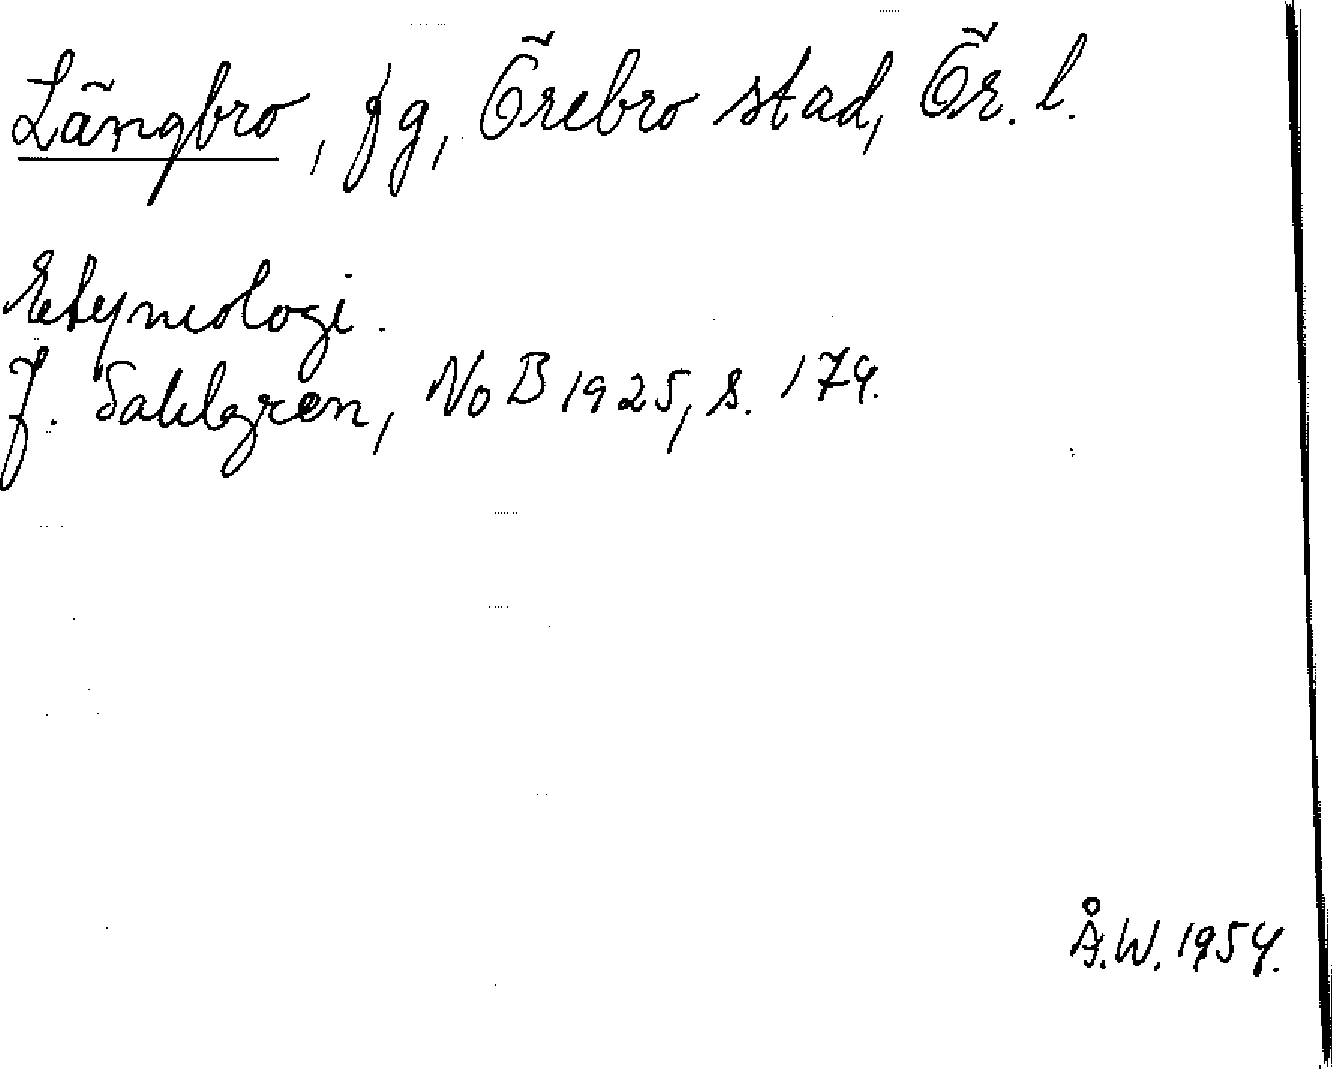 Längbro, fg, Örebro stad, Ör. l.
Etymologi.
J. Sahlgren, NoB 1925, s. 174.
Å.W. 1954.